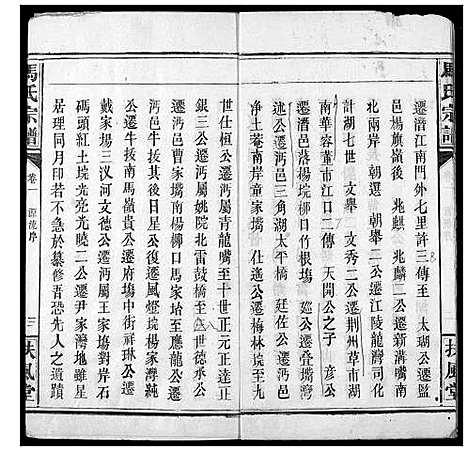 馬氏宗譜
扶風堂
遷潛江南門外七里許三傳至　太瑚公遷監
邑楊旗嶺後　兆麒　兆麟二公遷新溝南
北兩岸　朝選　朝舉二公遷江陵龍灣司化
計湖七世　文秀二公遷荆州草市湖
南華容董市江口二傳　天開公之子　彦公
遷沔邑落楊垸柳口竹根塲　廵公遷叠塆灣
述公遷沔邑三角湖太平橋　廷佐公遷
净土菴南岸童家塆　仕進公遷梅林垸至九
世仕恒公遷沔屬青龍嘴至十世正元正達正
銀三公遷沔屬姚院北雷鼓橋　世德承公
遷沔邑曹家塆南楊柳口馬家坮至　應龍公遷
沔邑牛埠後日星公復遷風燈垸楊家灣純
公遷牛拔南馬嶺貴公遷府塲中街祥琳公遷
戴家塲三汊河文德公遷沔屬王家塆對岸石
碼頭紅土垸光亮光曉二公遷尹家灣地雖星
居理同月印若不急於纂修吾恐先人之遺蹟
馬氏宗譜
卷一　源流序
三
扶風堂